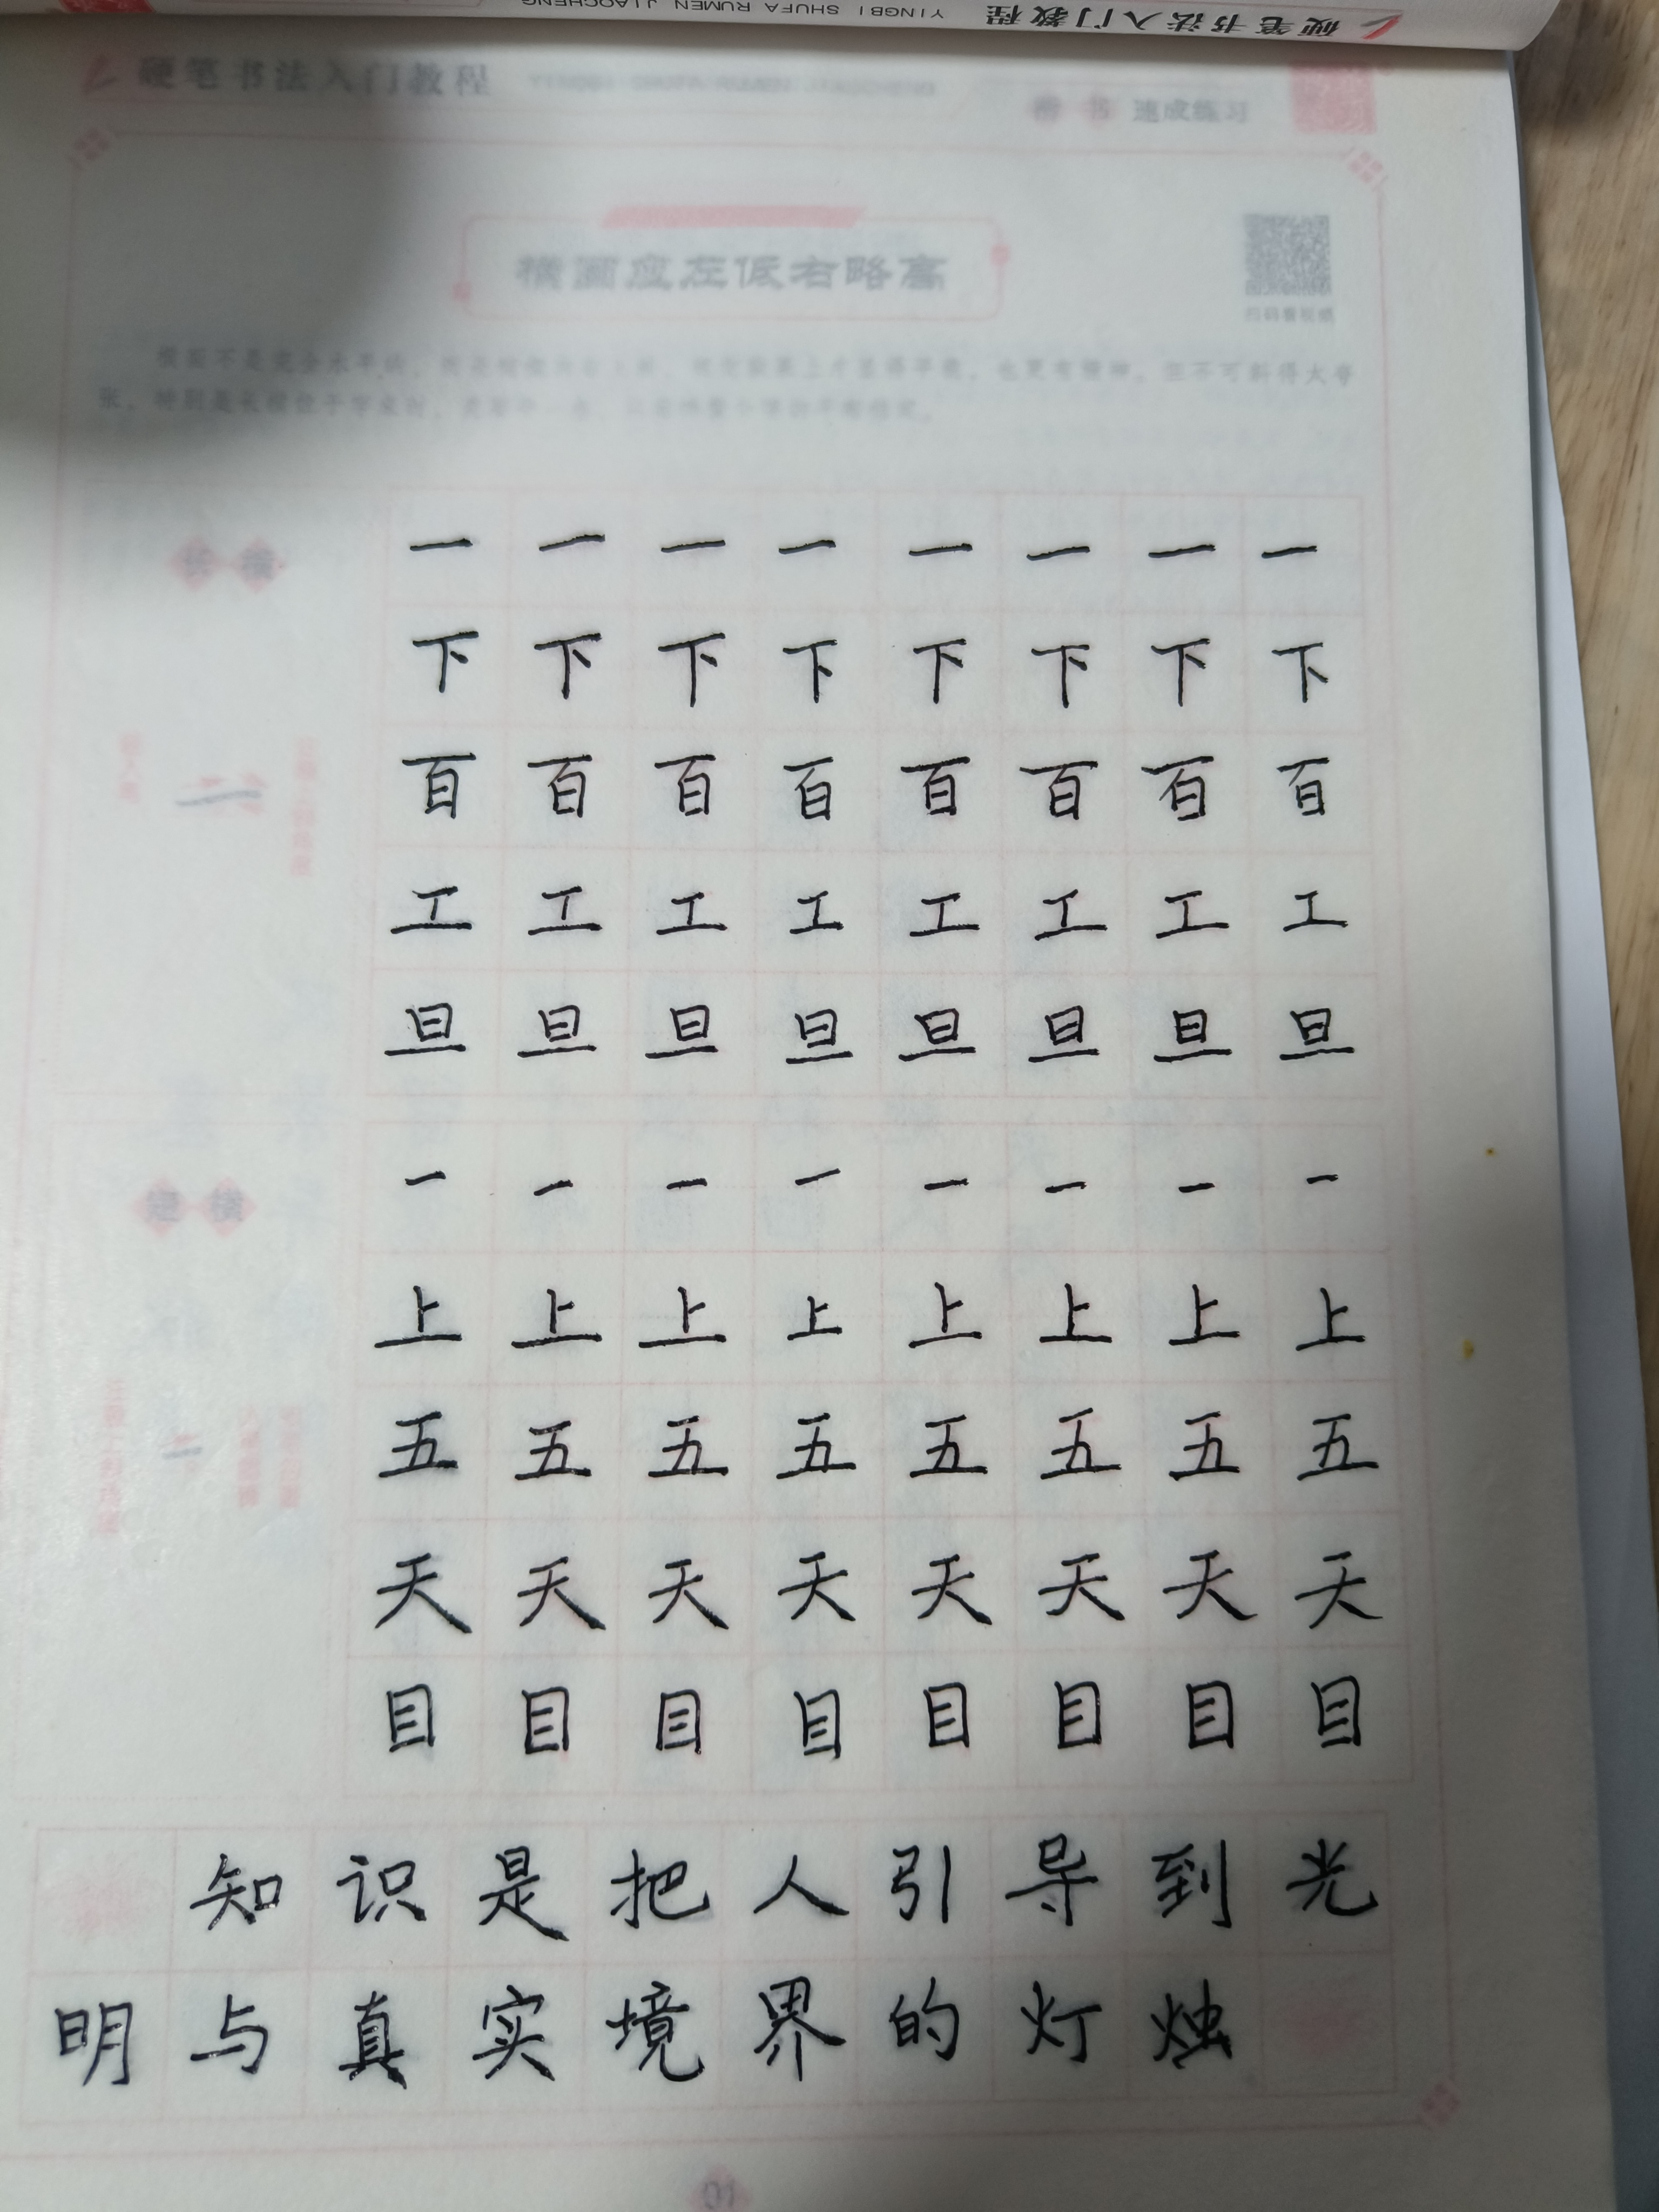 硬笔书法入门教程 YINGBI SHUFA RUMEN JIAOCHENG
硬笔书法入门教程
楷书 速成练习
横画应左低右略高
扫码看视频
长横
一 一 一 一 一 一 一 一
下 下 下 下 下 下 下 下
百 百 百 百 百 百 百 百
工 工 工 工 工 工 工 工
旦 旦 旦 旦 旦 旦 旦 旦
短横
一 一 一 一 一 一 一 一
上 上 上 上 上 上 上 上
五 五 五 五 五 五 五 五
天 天 天 天 天 天 天 天
目 目 目 目 目 目 目 目
知识是把人引导到光
明与真实境界的灯烛
01